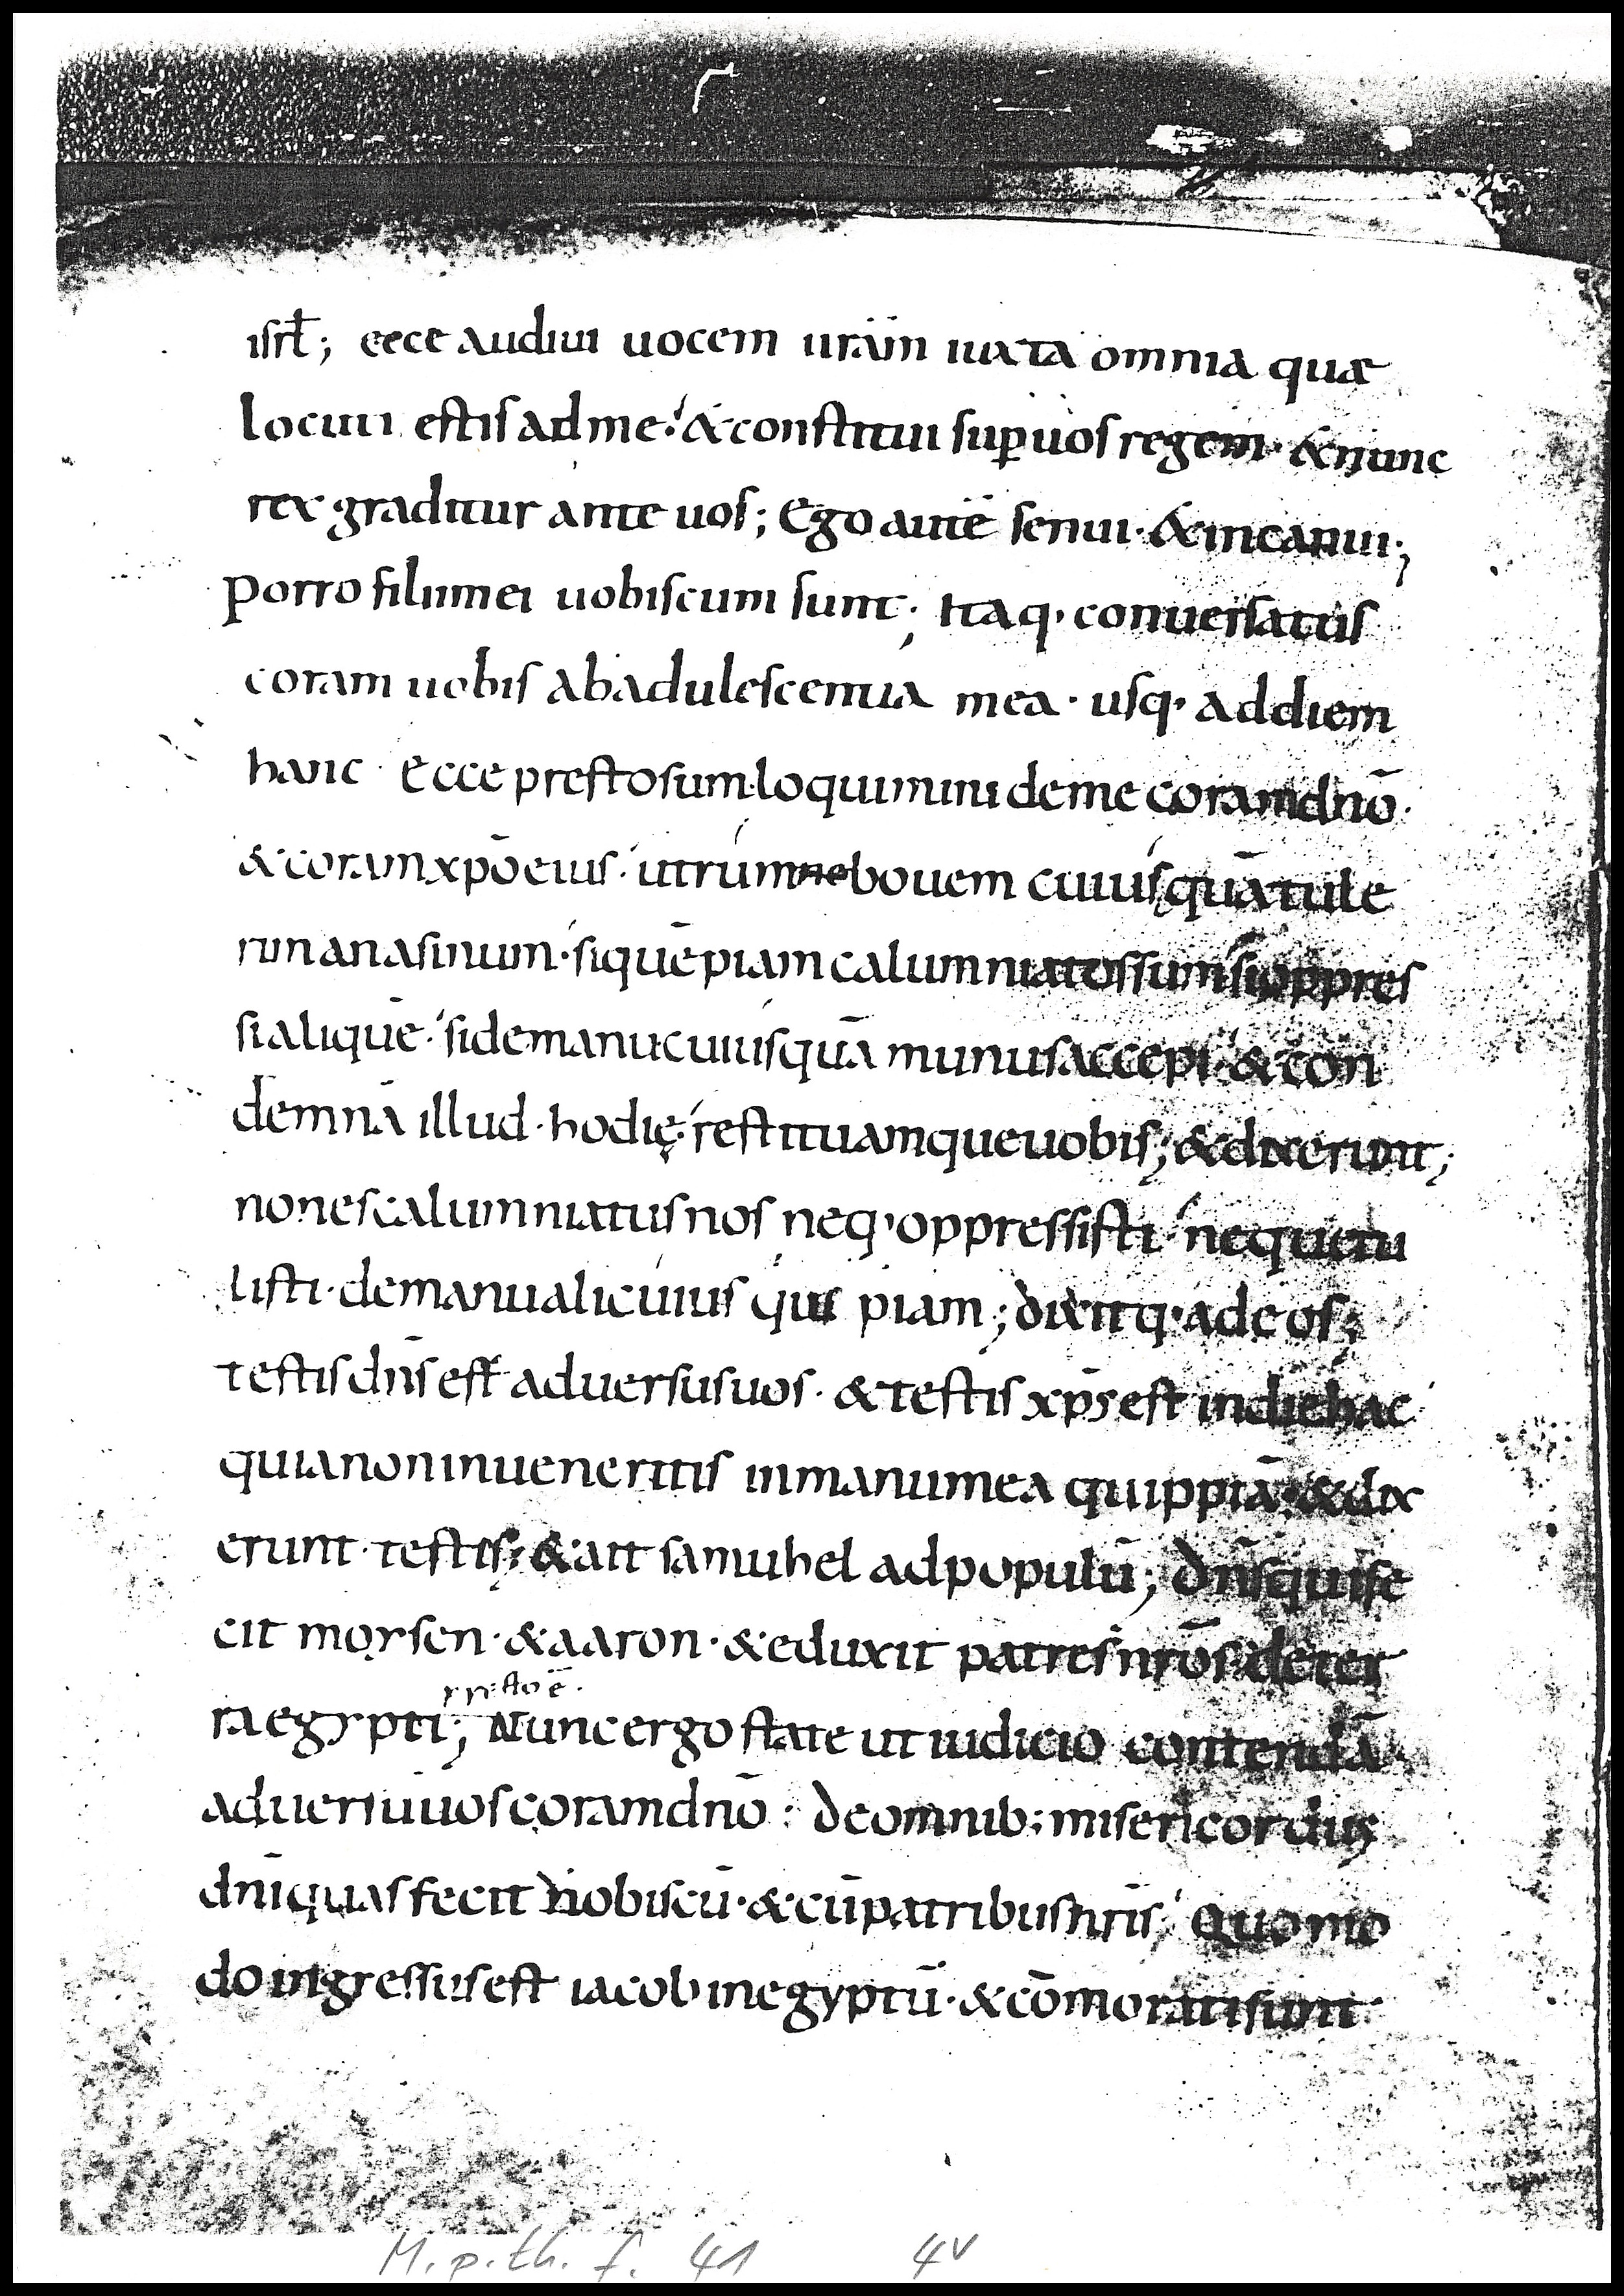 isrł; ecce audiui uocem uram̄ iuxta omnia quæ
locuti estis ad me· & constitui suꝑ uos regem· & nunc
rex graditur ante uos; Ego autē senui· & incanui;
porro filii mei uobiscum sunt; Itaq· conuersatus
coram uobis ab adulescentia mea· usq· ad diem
hanc· Ecce presto sum· loquimini de me coram dn̄o·
& coram xp̄o eius· utrum bouem cuiusquā tule
rim an asinum· si quēpiam calumniatos sum si oppres
si aliquē· si de manu cuiusquā munus accepi· & con
demnā illud· hodię· restituamque uobis; & dixerunt;
non es calumniatus nos neq· oppressisti· neque tu
listi· de manu alicuius quis piam; dixitq· ad eos;
testis dn̄s est aduersus uos· & testis xp̄s est in die hac
quia non inueneritis in manu mea quippiā· & dix
erunt· testis; & ait samuhel ad populū; dn̄s qui fe
cit moysen· & aaron· & eduxit patres nr̄os de ter
presto ē·
ra egypti; Nunc ergo state ut iudicio contendā
aduersū uos coram dn̄o· de omnib; misericordiis
dn̄i quas fecit nobiscū· & cū patribus nr̄is; Quomo
do ingressus est iacob in egyptū· & cōmorati sunt
M. p. th. f. 41 4v